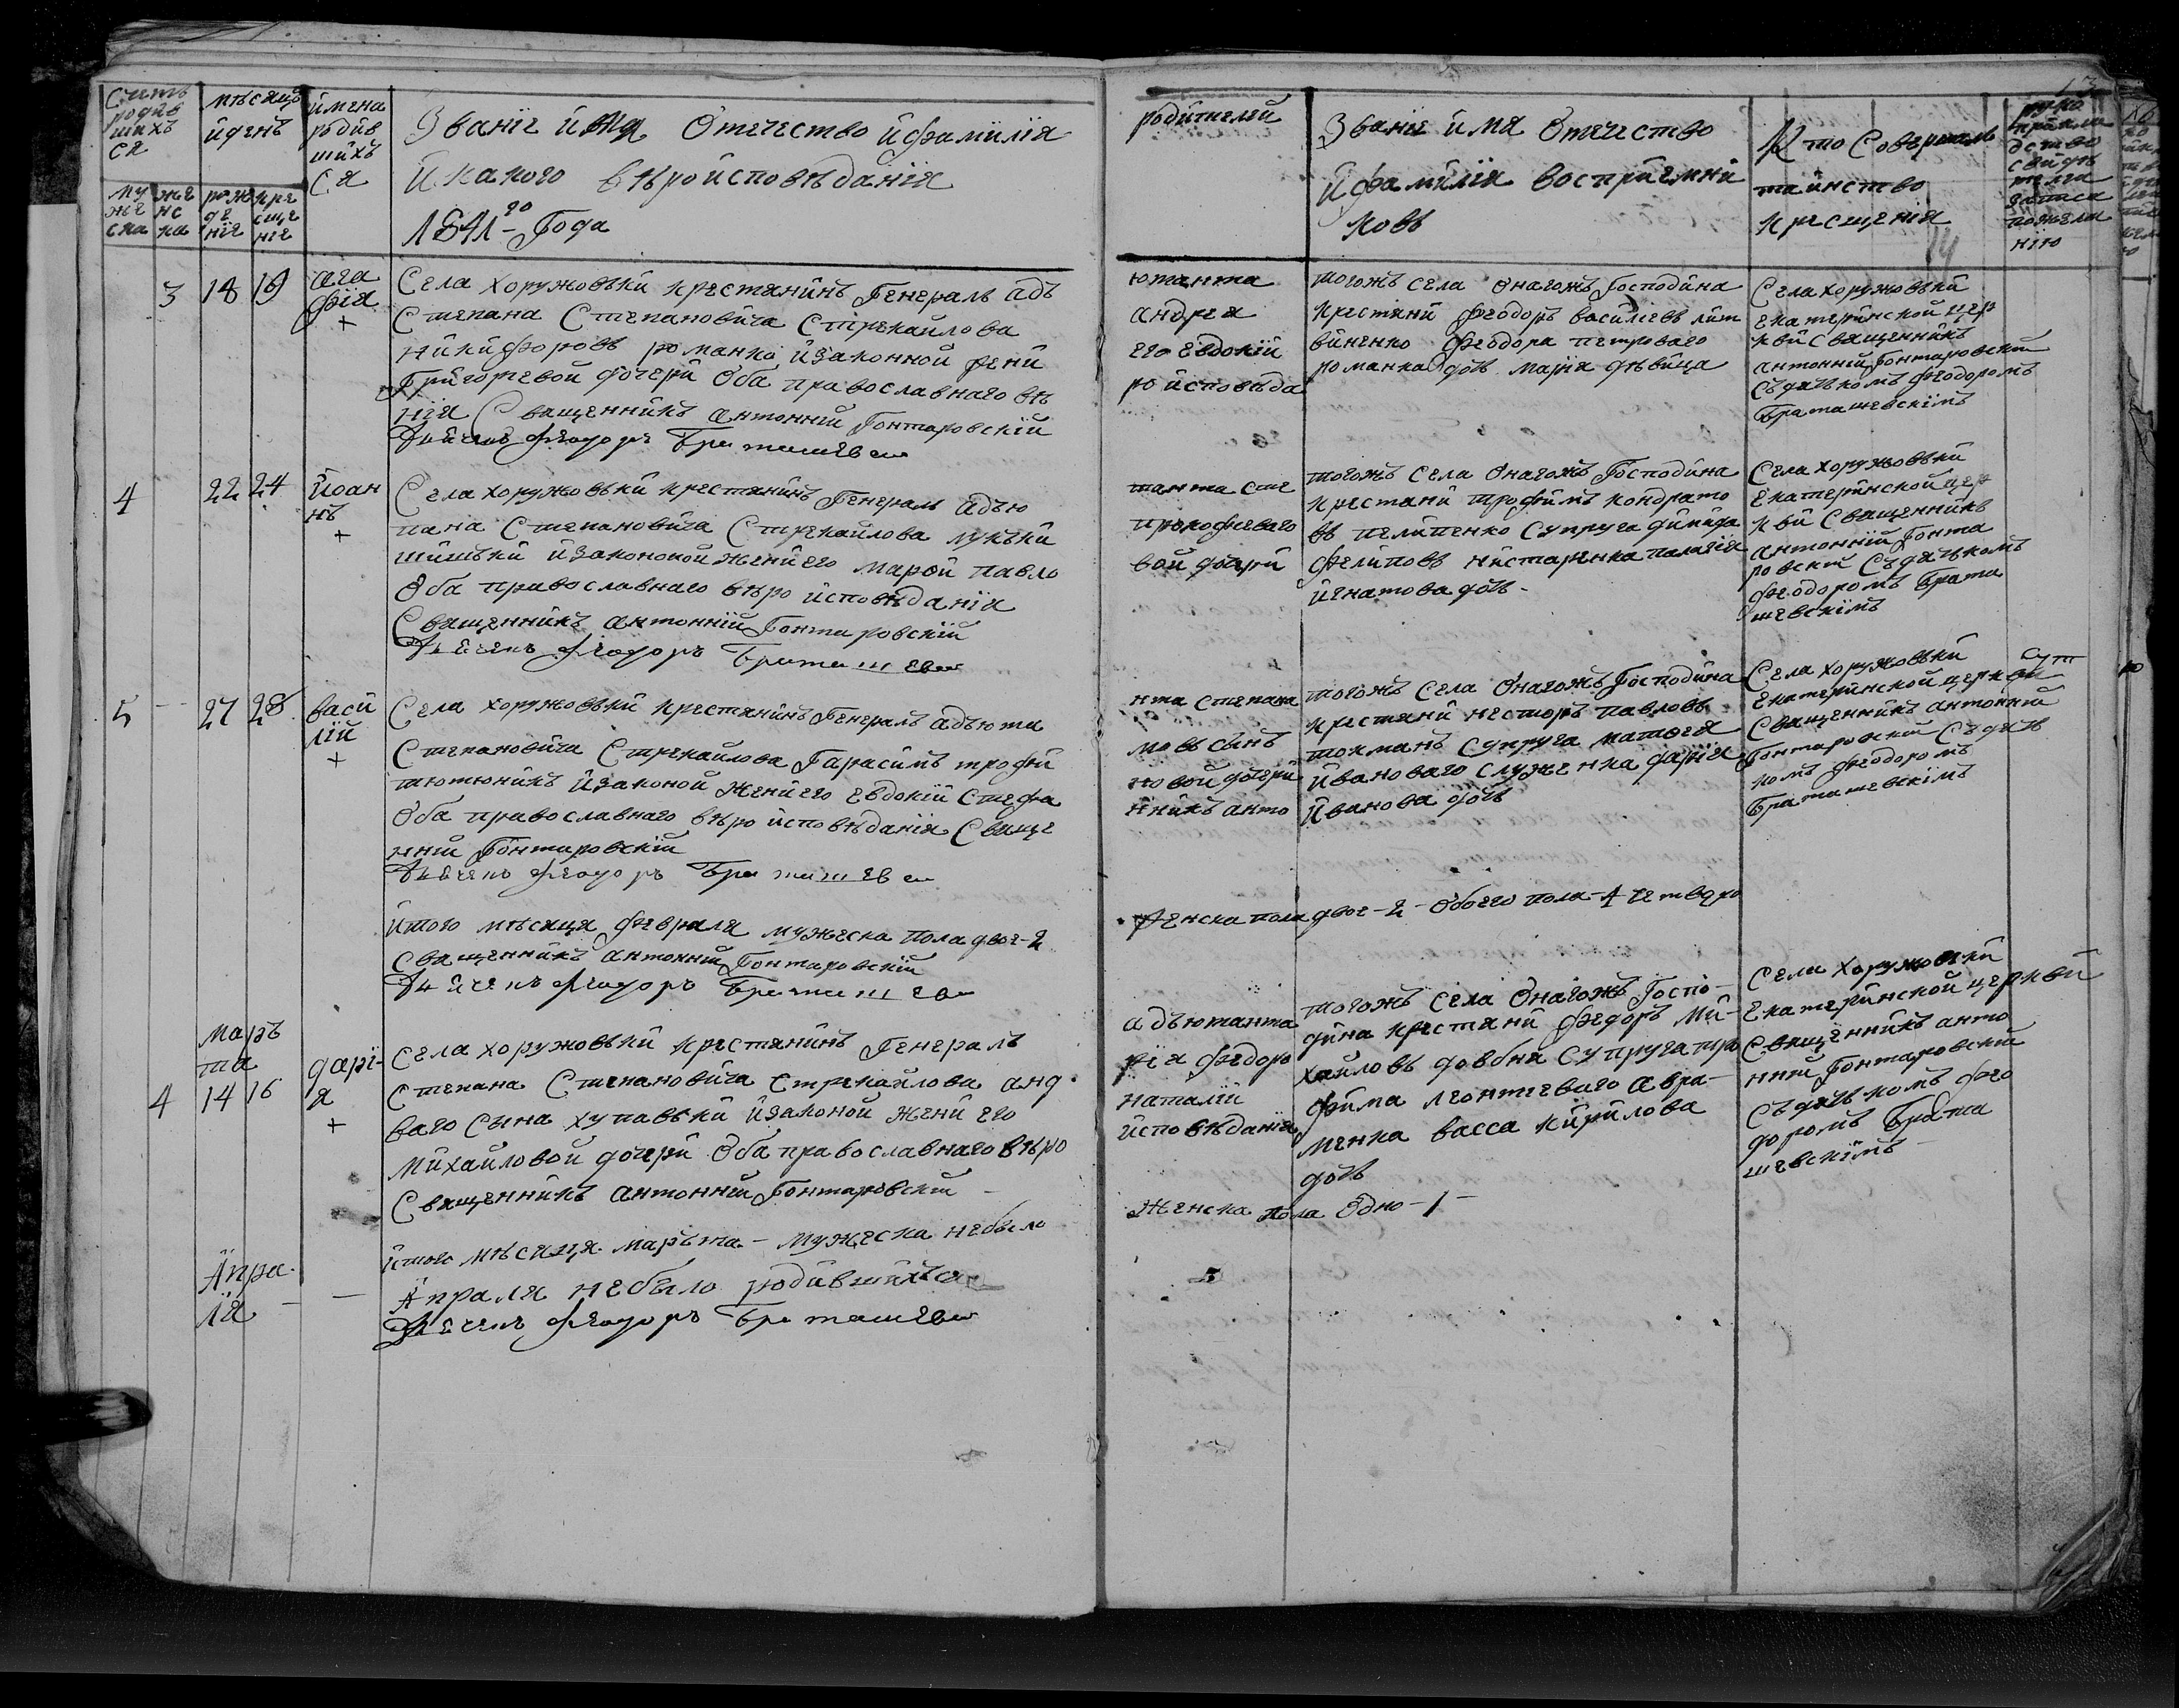 Счетъ
родив
шихъ
ся
мѣсяцъ
и день
имена
родив
шихъ
ся
Званїе имя Отечество и фамилїя
и какого вѣроисповѣданїя
1841-го Года
родителей
Званїе имя Отечество
и фамилїя восприемни
ковъ
Кто Совершалъ
таинство
крещенїя
му
же
ска
же
нс
ка
рож
де
нїе
кре
ще
нїе
3 18 19
ага
фїя
+
Села хоружовки крестянинъ Генералъ адъ
Степана Степановича Стрекалова
Никифоровъ романко и законной жени
Григориевой дочери Оба православного вѣ
нїя Священникъ антонній Гонтаровскїй
Дяченъ Феодоръ Браташев
ютанта
андрея
его Евдокїи
роисповѣда
тогожъ села Онагожъ Господина
крестяни Феодоръ василїевъ лит
виненко Феодора петроваго
романка дочь марїя дѣвица
Села хоружовки
Екатеринской цер
кви Священникъ
антонній Гонтаровскій
съ дячкомъ Феодоромъ
Браташевскїмъ
4 22 24
Иоан
нъ
+
Села хоружовки крестянинъ Генералъ адъю
пана Степановича Стрекалова лукъки
шишъки и законной жени его марой павло
Оба православного вѣроисповѣданїя
Священникъ антонній Гонтаровскїй
Дяченъ Феодоръ Браташев
танта сте
прокофиеваго
вой дочери
тогожъ села Онагожъ Господина
крестяни трофимъ кондрато
въ пелипенко Супруга
Фелиповъ нистеренка палагїя
игнатова дочь -
Села хоружовки
Екатеринской цер
кви Священникъ
антонній Гонта
ровскїй Съ дячкомъ
Феодоромъ Брата
шевскїмъ
5 27 28
васи
лїй
+
Села хоружовки крестянинъ Генералъ адъюта
Степановича Стрекалова Гарасимъ трофи
тютюникъ и законой жени его евдокїи Стефа
Оба православного вѣроисповѣданїя Свяще
нній Гонтаровскїй
Дяченъ Феодоръ Браташев
нта степана
мовъ сынъ
новой дочери
нникъ анто
тогожъ села Онагожъ Господина
крестяни несторъ павловъ
токманъ Супруга матфея
ивановаго служенка дарїя
Иванова дочь
Села хоружовки
Екатеринской церкви
Священникъ антонній
Гонтаровскїй Съ дяч
комъ Феодоромъ
Браташевскїмъ
Итого мѣсяця февраля мужеска пола двое-2
Священникъ антонній Гонтаровскїй
Дяченъ Феодоръ Браташев
Женска пола двое-2-Обоего пола-4 четверо
маръ
та
4 14 16
дарї-
я
+
Села хоружовки крестянинъ Генералъ
Степана Степановича Стрекалова анд
ваго Сына хупавки и законой жени его
Михайловой дочери Оба православного вѣро
Священникъ антонній Гонтаровскїй -
адъютанта
рїя Федоро
наталїи
исповѣданїя
тогожъ села Онагожъ Госпо-
дина крестяни Федоръ Ми-
хайловъ довбня Супруга тро
фима леонтиеваго авра-
менка васса кирилова
дочь
Села хоружовки
Екатеринской церкви
Священникъ анто
нній Гонтаровскїй
Съ дячкомъ Фео
доромъ Брата
шевскїмъ
итого мѣсяця маръта - мужеска небыло
Женска пола Одно-1-
Апра-
ля -
-
Апраля небыло родившихъся
Дяченъ Феодоръ Браташев